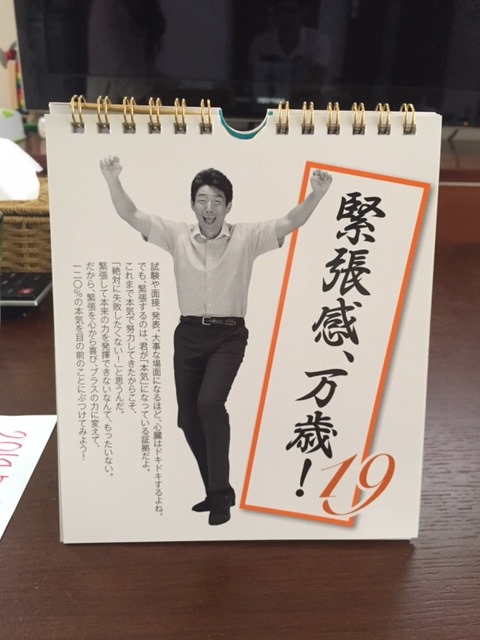 緊張感、万歳！
19
試験や面接、発表。大事な場面になるほど、心臓はドキドキするよね。
でも、緊張するのは、君が「本気」になっている証拠だよ。
これまで本気で努力してきたからこそ、
「絶対に失敗したくない！」と思うんだ。
緊張して本来の力を発揮できないなんて、もったいない。
だから、緊張を心から喜び、プラスの力に変えて、
一二〇％の本気を目の前のことにぶつけてみよう！